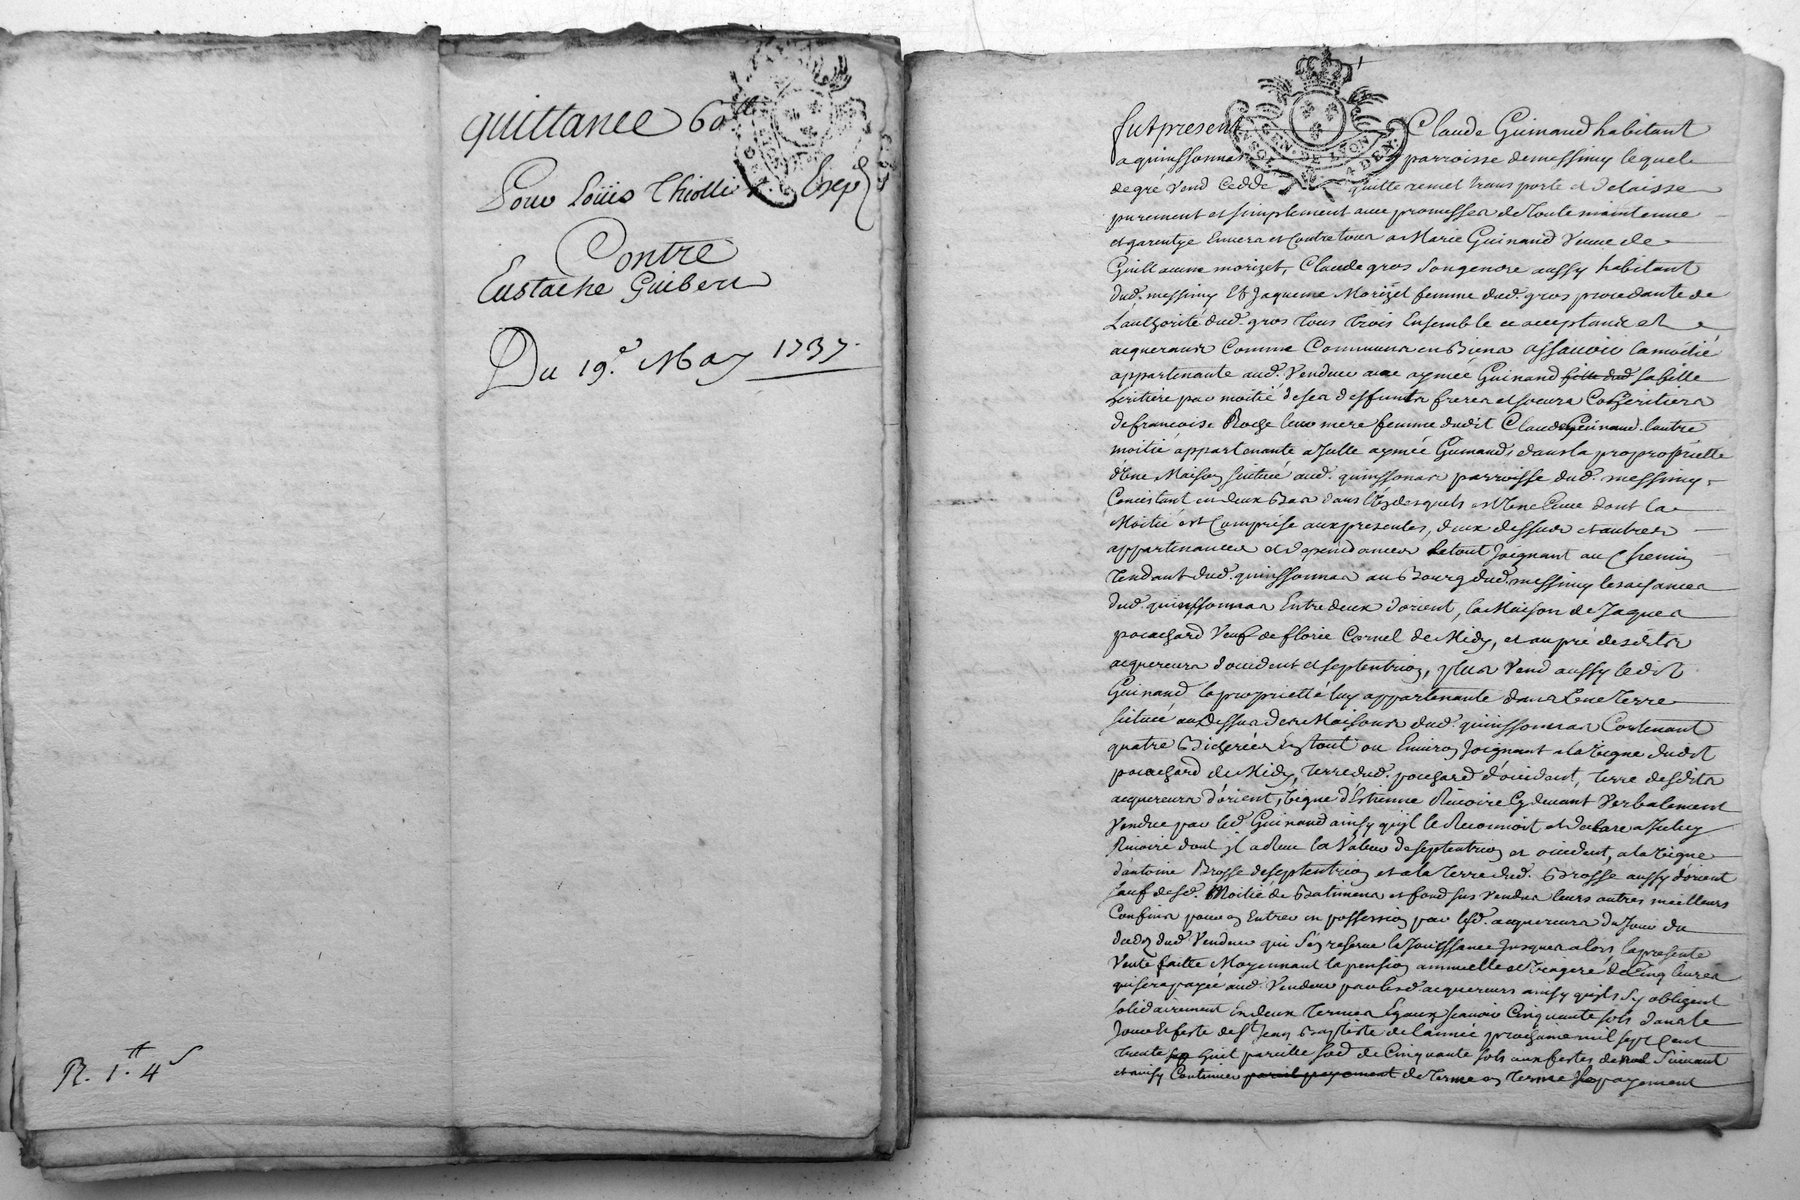 quittance 60 ᵗᵗ
Pour Loüis Thiollier Exepd
Contre
Eustache Guibert
Du 19.ᵉ May 1737.
R. 1.ᵗᵗ 4ˢ
GEN. DE LYON
SOL 4 DEN.
fut present Claude Guinand habitant
a quinssonnas parroisse de messimy lequel
de gré vend cedde quitte remet transporte et delaisse
purement et simplement avec promesses de toute maintenue
et garentye Envers et Contre tous a Marie Guinand Veuve de
Guillaume morizet, Claude gros son gendre aussy habitant
dud. messimy Et Jaqueme Morizet femme dud. gros procedante de
L'authorité dud. gros tous trois Ensemble ce acceptants et
acquereurs Comme Communs en Biens assavoir la moitié
appartenante aud. Vendeur avec aymée Guinand fille dud sa fille
heritiere par moitié de ses deffunts freres et soeurs Coheritiers
de francoise Roche leur mere femme dudit Claude Guinand. lautre
moitié appartenante a Jcelle aymée Guinand, dans la proproprietté
d'Une Maison scituée aud. quinssonas parroisse dud. messimy.
Concistant en deux Bas dans l'Un desquels est Une Cuve dont la
Moitié est Comprise aux presentes, deux dessus et autres
appartenances et dependances Le tout Joignant au Chemin
Tendant dud. quinssonnas au Bourg dud. messimy les aisances
dud. quinssonnas Entre deux d'orient, la Maison de Jaques
pocachard Veuf de florie Cornel de Midy, et au pré desdits
acquereurs d'occident et septentrion, plus Vend aussy ledit
Guinand la proprietté luy appartenante dans Une Terre
scituée au dessus des Maisons dud. quinssonnas Contenant
quatre Bicherées En tout ou Environ Joignant a la Vigne dudit
pocachard de Midy, Terre dud. pocachard d'occident, Terre desdits
acquereurs d'orient, Vigne d'Estienne Rivoire Cy devant Verbalement
Vendue par led. Guinand ainsy qu'il le Reconnoit et declare a Jceluy
Rivoire dont il a Receu la Valeur de septentrion et occident, a la Vigne
d'antoine Brosse de septentrion et a la Terre dud. Brosse aussy d'orient
sauf desd. Moitié de Batimens et fond sus Vendus leurs autres meilleurs
Confins pour en Entrer en possession par lesd. acquereurs du Jour du
deces dud. Vendeur qui s'en reserve la Jouissance Jusques alors, la presente
Vente faitte Moyennant la pension annuelle et Viagere de Cinq livres
qui sera payée aud. Vendeur par lesd. acquereurs ainsy qu'ils s'y obligent
solidairement En deux Termes Egaux scavoir Cinquante sols dans le
Jour Et feste de Sᵗ Jean Baptiste de l'année prochaine mil sept Cent
trente sep huit pareille so.d de Cinquante sols aux festes de noel Suivant
et ainsy Continuer pareil payement de terme en terme Le payement